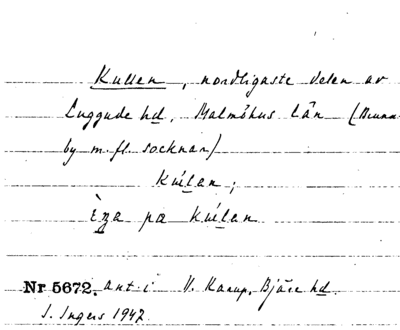 Kullen, nordligaste delen av
Luggude hd, Malmöhus län (Brunn-
by m. fl. socknar)
kúlan;
pæ kúlan
Nr 5672. ant. i V. Karup, Bjäre hd.
I. Ingers 1942.